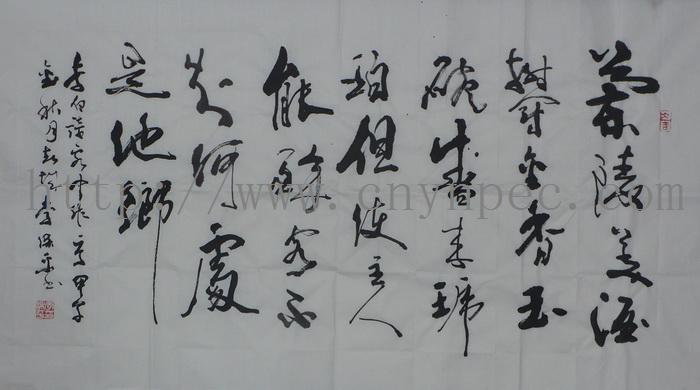 蘭陵美酒
鬱金香玉
碗盛来琥
珀但使主人
能醉客不
知何處
是他鄉
李白詩客中作 甲午
金秋月 书
http://www.cnynpec.com